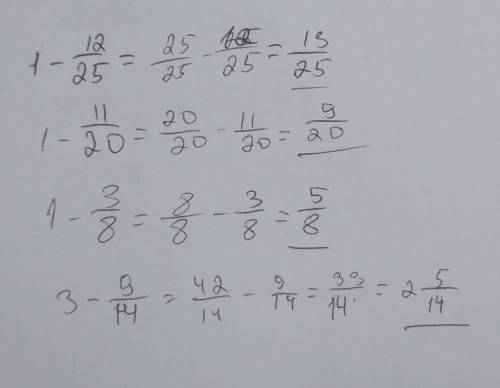 1 - 12/25 = 25/25 - 12/25 = 13/25
1 - 11/20 = 20/20 - 11/20 = 9/20
1 - 3/8 = 8/8 - 3/8 = 5/8
3 - 9/14 = 42/14 - 9/14 = 33/14 = 2 5/14